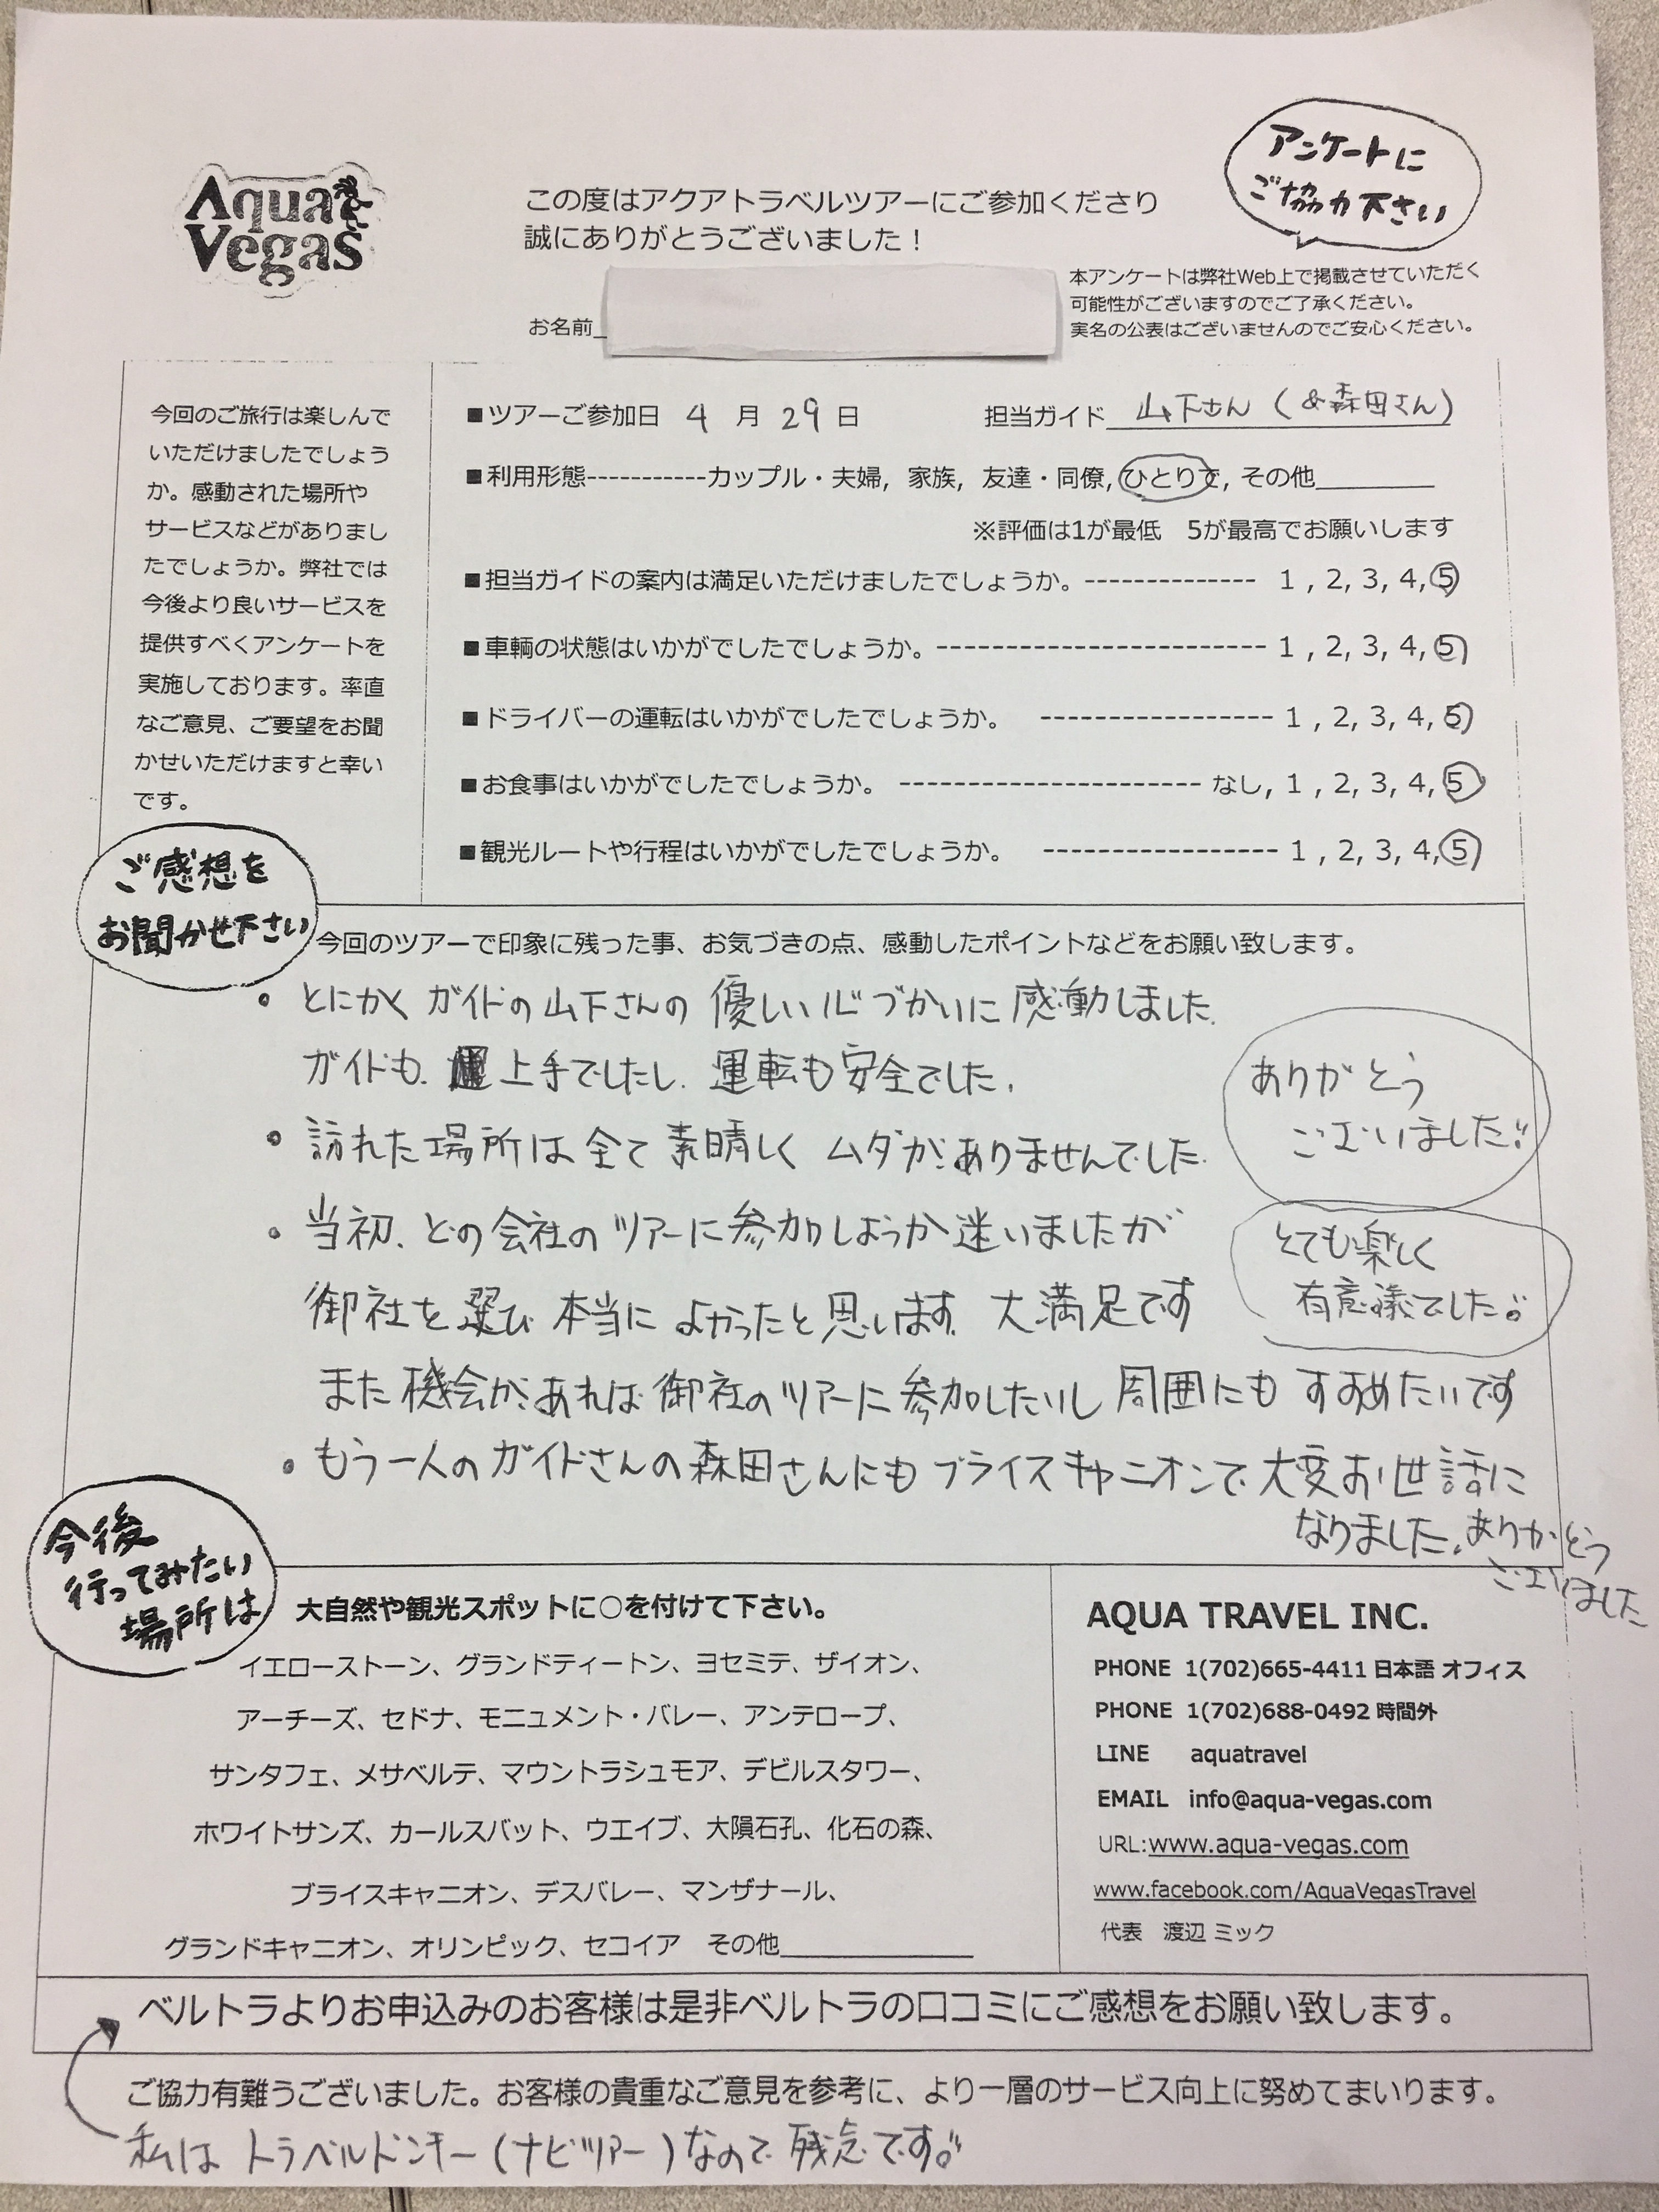 Aqua
Vegas
この度はアクアトラベルツアーにご参加くださり
誠にありがとうございました！
アンケートに
ご協力下さい
お名前
本アンケートは弊社Web上で掲載させていただく
可能性がございますのでご了承ください。
実名の公表はございませんのでご安心ください。
今回のご旅行は楽しんで
いただけましたでしょう
か。感動された場所や
サービスなどがありまし
たでしょうか。弊社では
今後より良いサービスを
提供すべくアンケートを
実施しております。率直
なご意見、ご要望をお聞
かせいただけますと幸い
です。
■ツアーご参加日 4 月 29 日 担当ガイド 山下さん (&森田さん)
■利用形態-----------カップル・夫婦, 家族, 友達・同僚, ひとりで, その他
※評価は1が最低 5が最高でお願いします
■担当ガイドの案内は満足いただけましたでしょうか。-------------- 1 , 2, 3, 4, 5
■車輌の状態はいかがでしたでしょうか。------------------------ 1 , 2, 3, 4, 5
■ドライバーの運転はいかがでしたでしょうか。 ----------------- 1 , 2, 3, 4, 5
■お食事はいかがでしたでしょうか。 ---------------------- なし, 1 , 2, 3, 4, 5
■観光ルートや行程はいかがでしたでしょうか。 ----------------- 1 , 2, 3, 4, 5
ご感想を
お聞かせ下さい
今回のツアーで印象に残った事、お気づきの点、感動したポイントなどをお願い致します。
・とにかく ガイドの山下さんの 優しい心づかいに 感動しました。
ガイドも、上手でしたし、運転も安全でした。
・訪れた場所は全て素晴しく ムダがありませんでした。
ありがとう
ございました!!
・当初、どの会社のツアーに参加しようか迷いましたが
御社を選び 本当に よかったと思います。大満足です
とても楽しく
有意義でした。
また機会があれば御社のツアーに参加したいし 周囲にも すすめたいです
・もう一人のガイドさんの森田さんにも ブライスキャニオンで大変お世話に
なりました。ありがとう
ございました
今後
行ってみたい
場所は
大自然や観光スポットに○を付けて下さい。
イエローストーン、グランドティートン、ヨセミテ、ザイオン、
アーチーズ、セドナ、モニュメント・バレー、アンテロープ、
サンタフェ、メサベルテ、マウントラシュモア、デビルスタワー、
ホワイトサンズ、カールスバット、ウエイブ、大隕石孔、化石の森、
ブライスキャニオン、デスバレー、マンザナール、
グランドキャニオン、オリンピック、セコイア その他
AQUA TRAVEL INC.
PHONE 1(702)665-4411 日本語 オフィス
PHONE 1(702)688-0492 時間外
LINE aquatravel
EMAIL info@aqua-vegas.com
URL:www.aqua-vegas.com
www.facebook.com/AquaVegasTravel
代表 渡辺 ミック
ベルトラよりお申込みのお客様は是非ベルトラの口コミにご感想をお願い致します。
ご協力有難うございました。お客様の貴重なご意見を参考に、より一層のサービス向上に努めてまいります。
私は トラベルドンキー(ナビツアー)なので 残念です。